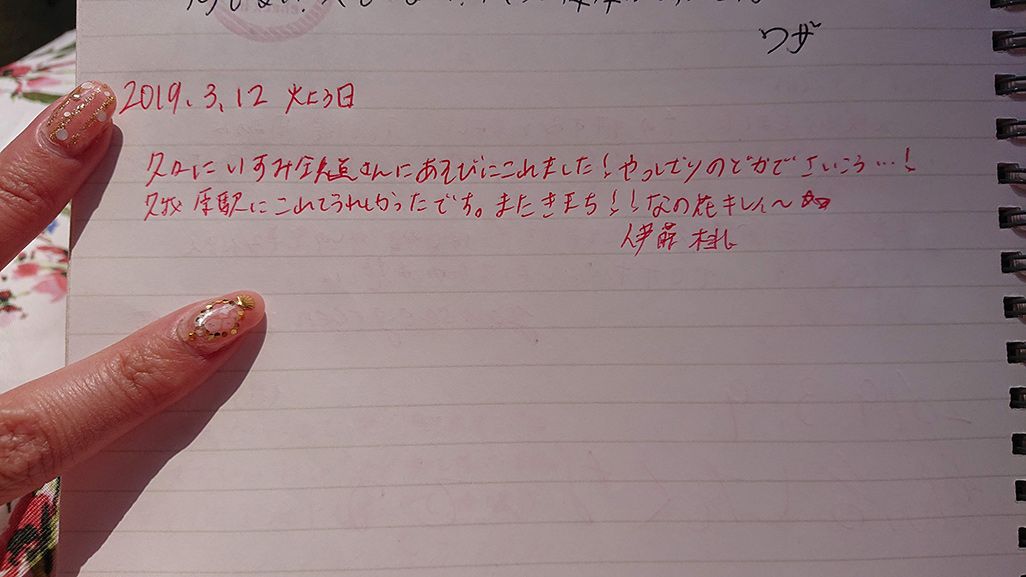 ワザ
2019.3.12 火よう日
久々にいすみ鉄道さんにあそびにこれました!やっぱりのどかでさいこう…!
久我原駅にこれてうれしかったです。またきまち!!なの花キレイ〜☆
伊藤 桃